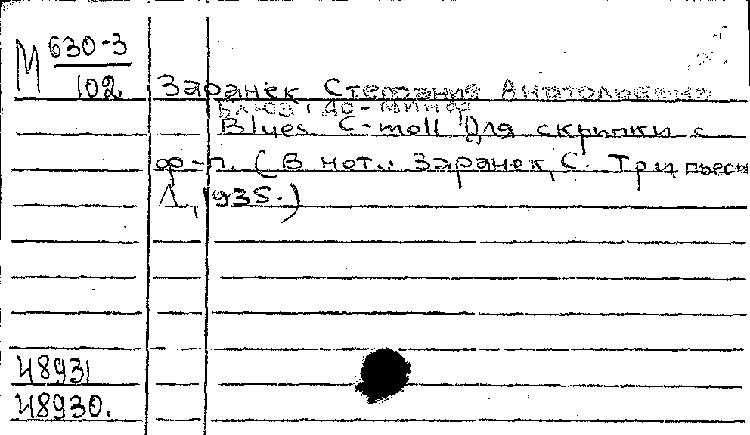 М 630-3
102 Заранек Стефания Анатольевна
Блюз, до-минор
Blues C-moll для скрипки с
ф-п. (В нот.: Заранек, С. Три пьесы
Л., 1935.)
48931
48930.